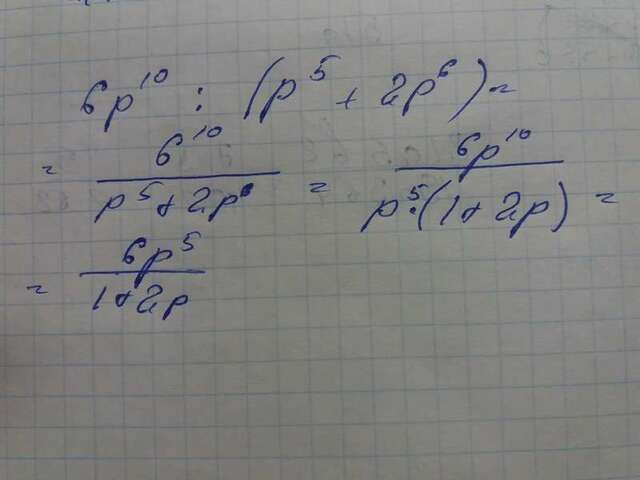 6p¹⁰ : (p⁵ + 2p⁶) =
= 6¹⁰ / (p⁵ + 2p⁶) = 6p¹⁰ / (p⁵·(1 + 2p)) =
= 6p⁵ / (1 + 2p)